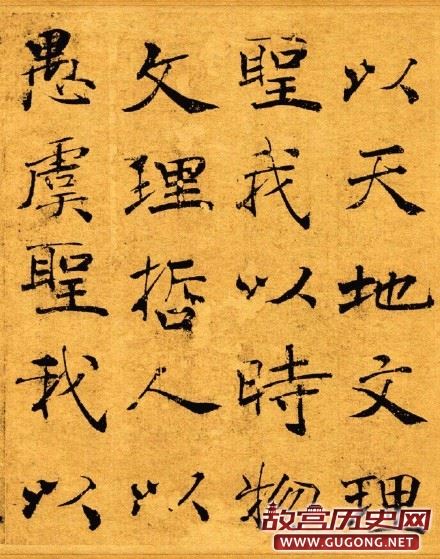 以天地文理
聖我以時物
文理哲人以
愚虞聖我以
故宫历史网
WWW.GUGONG.NET